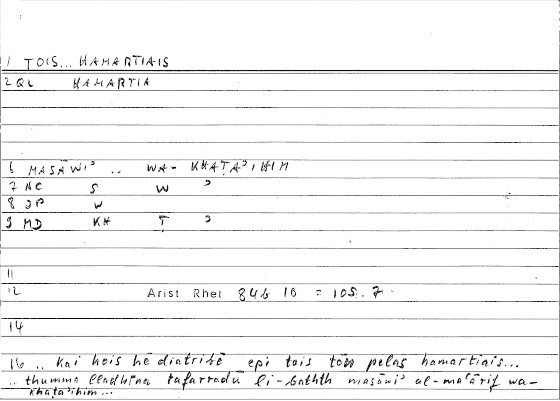 1 TOIS... HAMARTIAIS
2 QL HAMARTIA
6 MASĀWIʾ .. WA- KHAṬAʾIHIM
7 NC S W ʾ
8 JP W
9 MD KH Ṭ ʾ
11
12 Arist Rhet 84b 10 = 105. 7
14
16 .. kai hois hē diatribē epi tois tōn pelas hamartiais...
.. thumma lladhīna tafarradū li-baththi masāwiʾ al-maʿārif wa-
khaṭaʾihim...